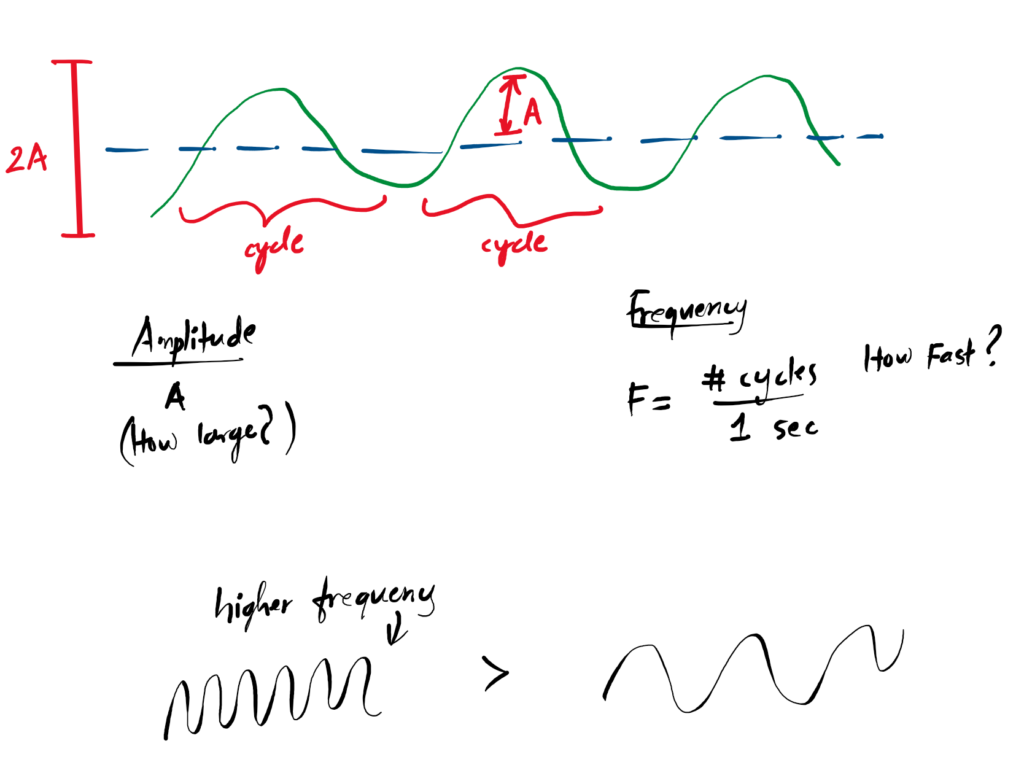 2A
A
cycle
cycle
Amplitude
A
(How large?)
Frequency
F = # cycles
1 sec
How Fast?
higher frequeny
>